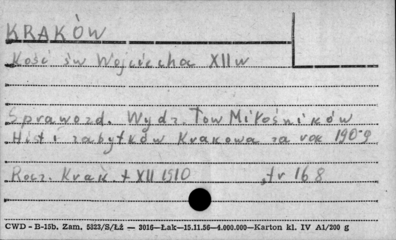 KRAKÓW
Kość św Wojciecha XII w
Sprawozd. Wydz. Tow Miłośników
Hist i zabytków Krakowa za rok 1909
Rocz. Krak. t XII 1910 str 168
CWD - B-15b, Zam. 5323/S/Łż — 3016—Łak—15.11.56—4.000.000—Karton kl. IV A1/200 g